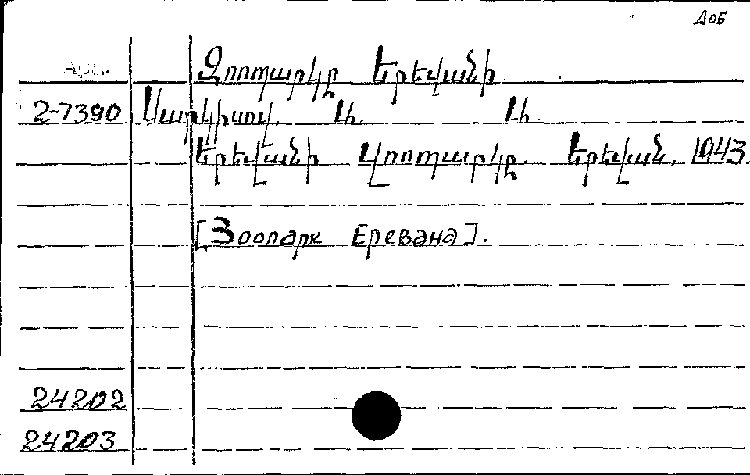 ДОБ
Զոոտարկը Երեվանի
2-7390 Սարկիսով, Ա. Ա.
Երեվանի Զոոպարկը. Երեվան, 1943.
[Зоопарк Еревана].
24202
24203